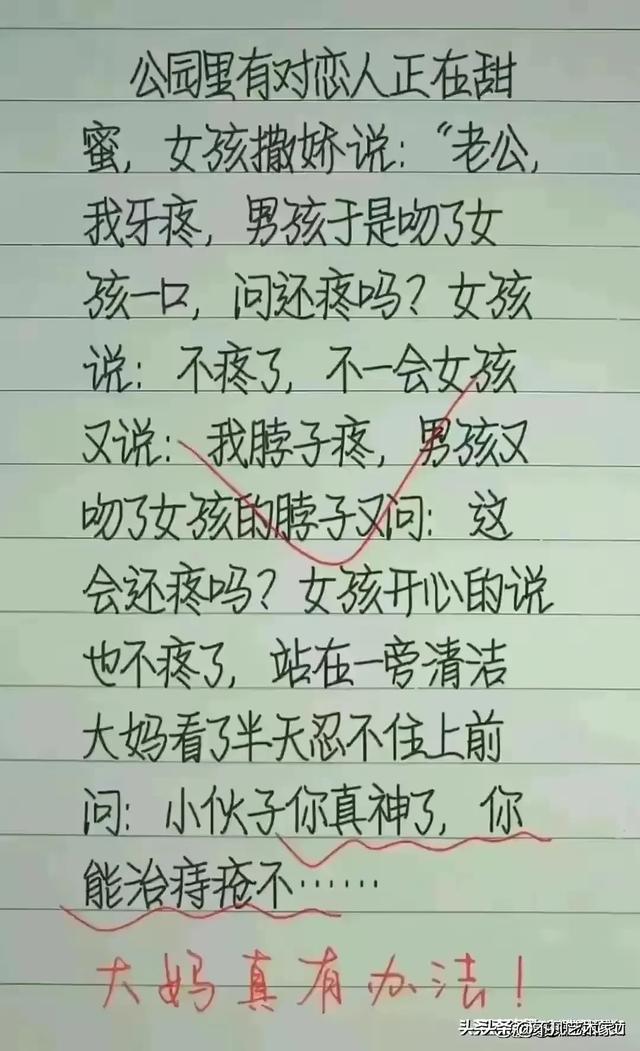 公园里有对恋人正在甜
蜜，女孩撒娇说：“老公，
我牙疼，男孩于是吻了女
孩一口，问还疼吗？女孩
说：不疼了，不一会女孩
又说：我脖子疼，男孩又
吻了女孩的脖子又问：这
会还疼吗？女孩开心的说
也不疼了，站在一旁清洁
大妈看了半天忍不住上前
问：小伙子你真神了，你
能治痔疮不……
大妈真有办法！